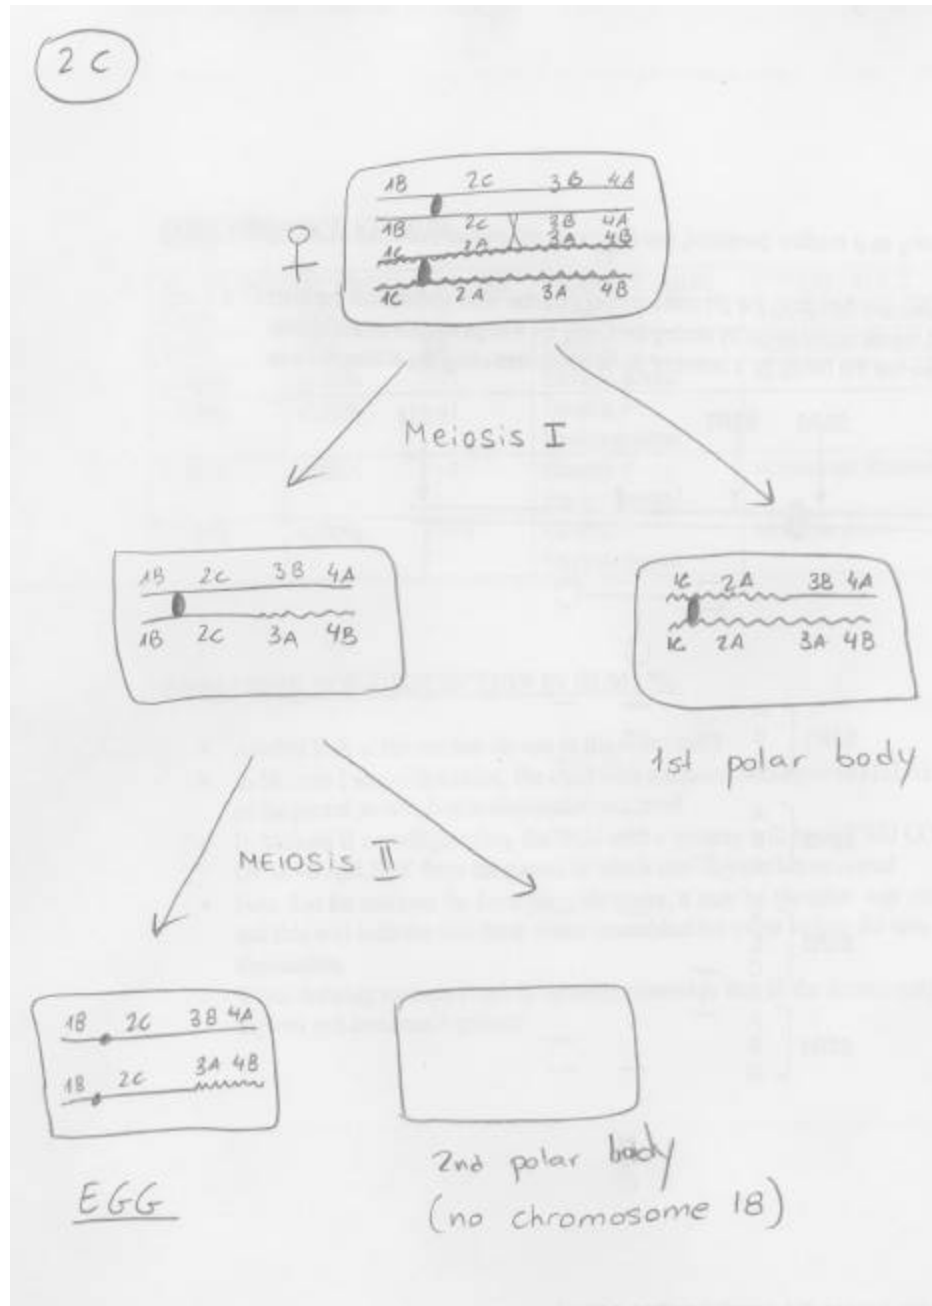 2 C
1B 2C 3B 4A
1B 2C 3B 4A
1C 2A 3A 4B
1C 2A 3A 4B
Meiosis I
1B 2C 3B 4A
1B 2C 3A 4B
1C 2A 3B 4A
1C 2A 3A 4B
1st polar body
MEIOSIS II
1B 2C 3B 4A
1B 2C 3A 4B
EGG
2nd polar body
(no chromosome 18)